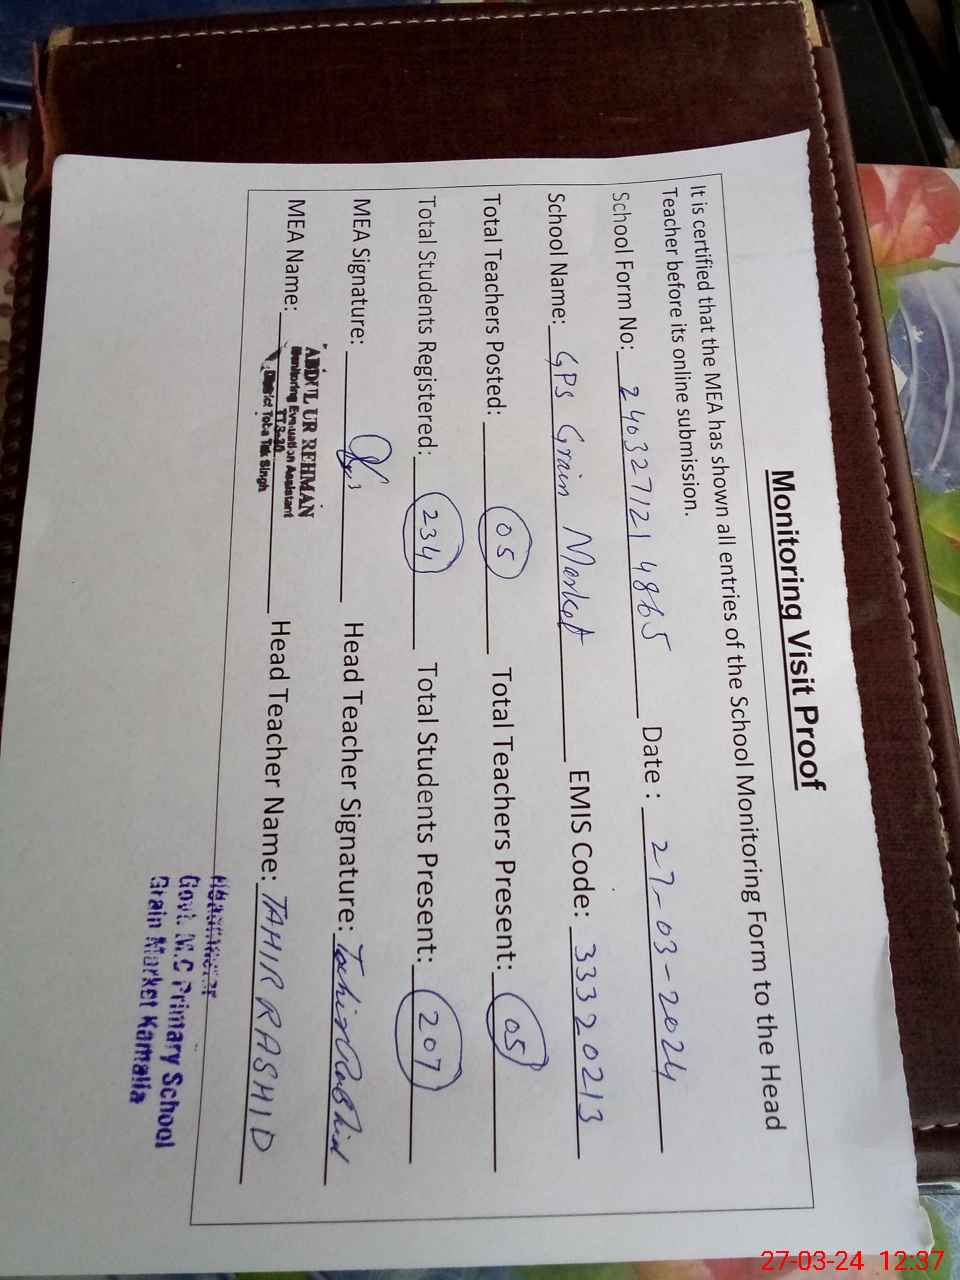 Monitoring Visit Proof
It is certified that the MEA has shown all entries of the School Monitoring Form to the Head
Teacher before its online submission.
School Form No: 240327121 4865 Date : 27-03-2024
School Name: GPS Grain Market EMIS Code: 33320213
Total Teachers Posted: 05 Total Teachers Present: 05
Total Students Registered: 234 Total Students Present: 207
MEA Signature: Head Teacher Signature: Tahir Rashid
MEA Name: Head Teacher Name: TAHIR RASHID
ABDUL UR REHMAN
Monitoring Evaluation Assistant
TTS-20
District Toba Tek Singh
Headmaster
Govt. M.C Primary School
Grain Market Kamalia
27-03-24 12:37